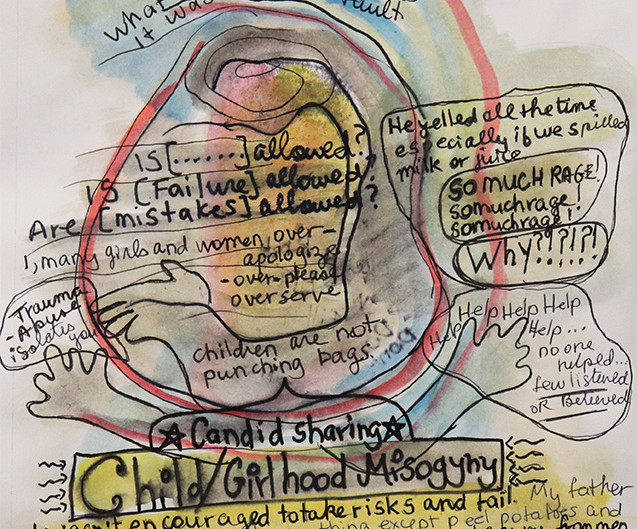 what
it was
fault
IS [.......] allowed?
IS [Failure] allowed?
Are [mistakes] allowed?
I, many girls and women, over-
apologize
-over-please
overserve
He yelled all the time
especially if we spilled
milk or juice
SO MUCH RAGE!
somuchrage!
somuchrage!
Why?!?!?!
Trauma
-Abuse
isolates
you
children are not
punching bags.
Help Help Help
Help
Help...
no one
helped...
few listened
OR Believed
☆Candid sharing☆
Child/Girlhood Misogyny
encouraged to take risks and fail. My father
except peel potatoes and